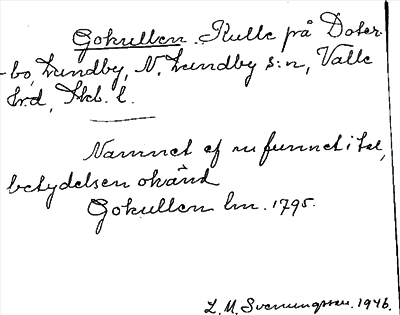 Gokullen. Kulle på Doter-
bo, Lundby, N. Lundby s:n, Valle
hrd, Skb. l.
Namnet ej nu funnet i tal,
betydelsen okänd
Gokullen lm. 1795.
L. M. Svenungsson. 1946.